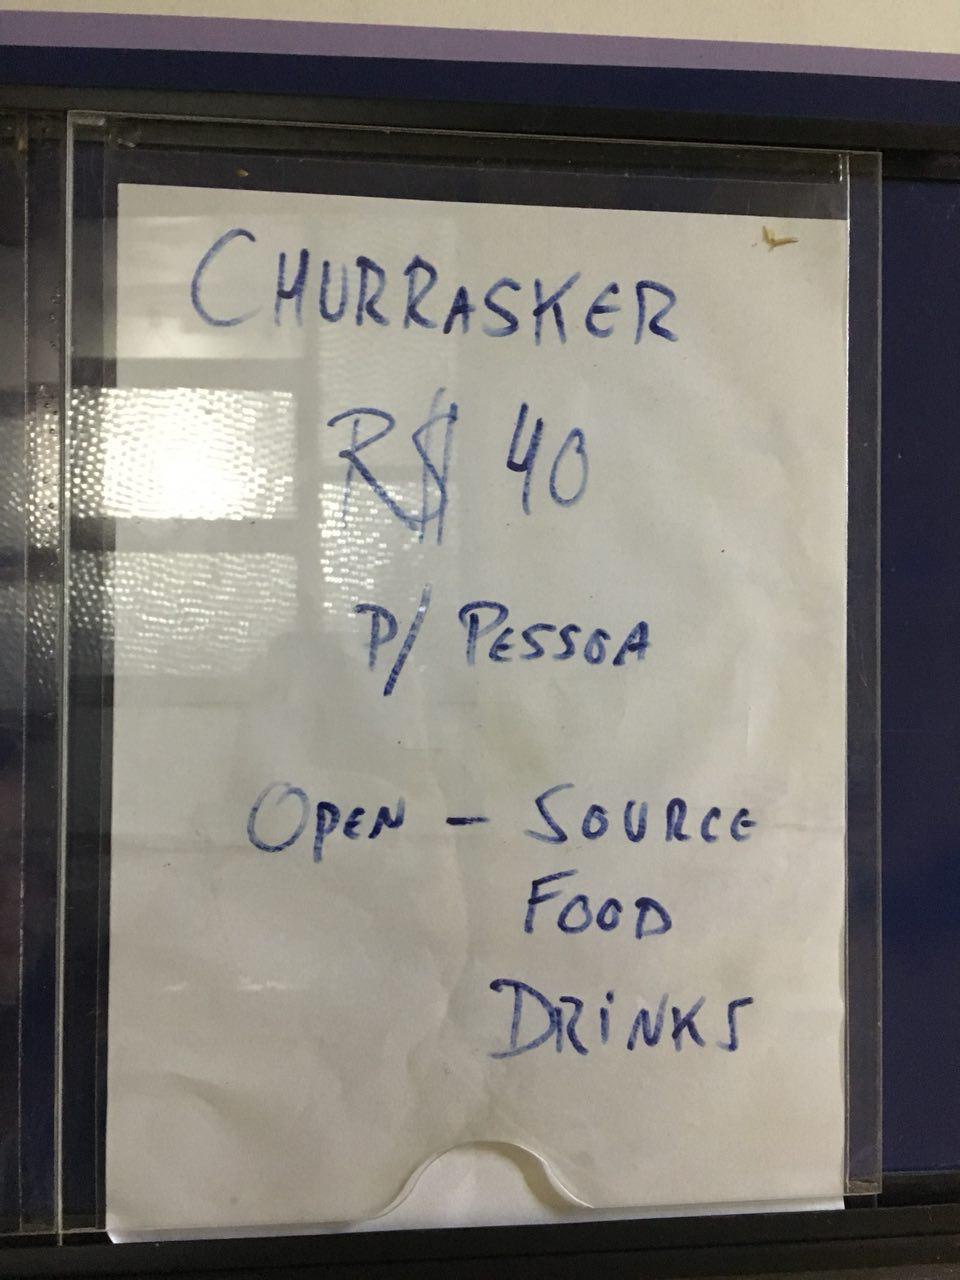 CHURRASKER
R$ 40
P/ PESSOA
OPEN - SOURCE
FOOD
DRINKS